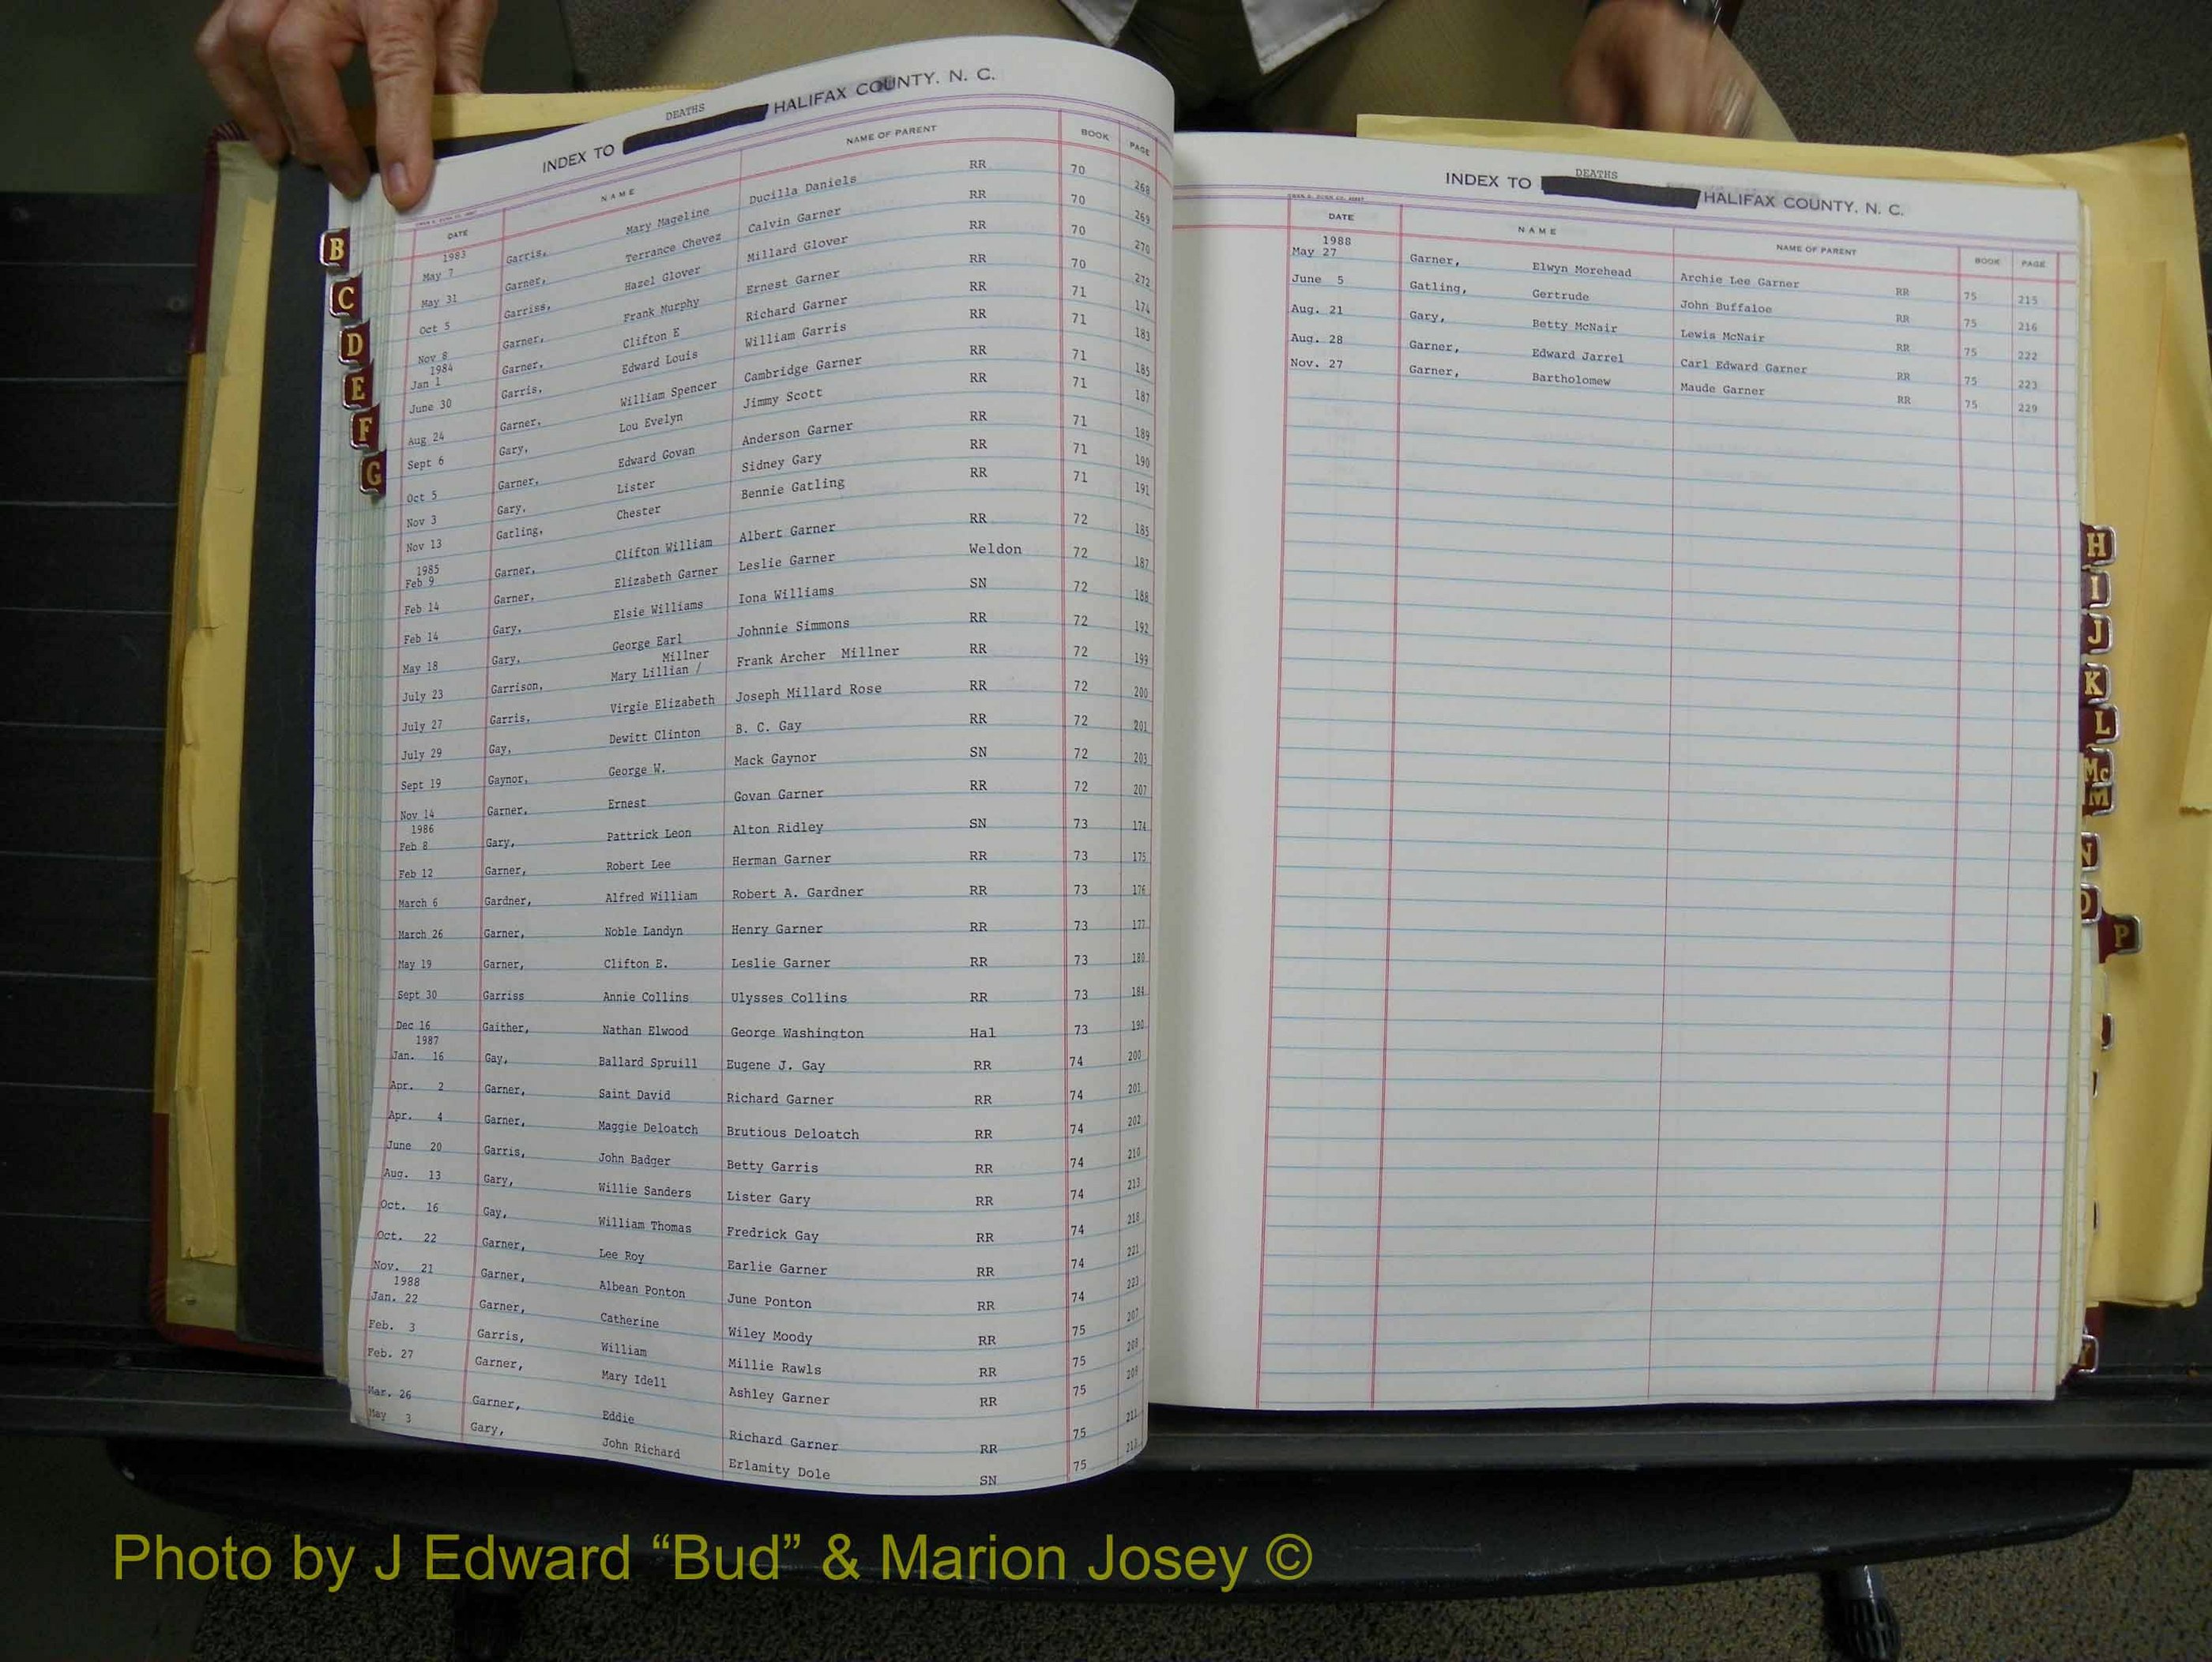 DEATHS
INDEX TO HALIFAX COUNTY, N. C.
DATE NAME NAME OF PARENT BOOK PAGE
1983
May 7 Garris, Mary Mageline Ducilla Daniels RR 70 268
May 31 Garner, Terrance Chevez Calvin Garner RR 70 269
Oct 5 Garriss, Hazel Glover Millard Glover RR 70 270
Nov 8 Garner, Frank Murphy Ernest Garner RR 70 272
1984
Jan 1 Garner, Clifton E Richard Garner RR 71 174
June 30 Garris, Edward Louis William Garris RR 71 183
Aug 24 Garner, William Spencer Cambridge Garner RR 71 185
Sept 6 Gary, Lou Evelyn Jimmy Scott RR 71 187
Oct 5 Garner, Edward Govan Anderson Garner RR 71 189
Nov 3 Gary, Lister Sidney Gary RR 71 190
Nov 13 Gatling, Chester Bennie Gatling RR 71 191
1985
Feb 9 Garner, Clifton William Albert Garner RR 72 185
Feb 14 Garner, Elizabeth Garner Leslie Garner Weldon 72 187
Feb 14 Gary, Elsie Williams Iona Williams SN 72 188
May 18 Gary, George Earl Johnnie Simmons RR 72 192
Millner
July 23 Garrison, Mary Lillian / Frank Archer Millner RR 72 199
July 27 Garris, Virgie Elizabeth Joseph Millard Rose RR 72 200
July 29 Gay, Dewitt Clinton B. C. Gay RR 72 201
Sept 19 Gaynor, George W. Mack Gaynor SN 72 203
Nov 14 Garner, Ernest Govan Garner RR 72 207
1986
Feb 8 Gary, Pattrick Leon Alton Ridley SN 73 174
Feb 12 Garner, Robert Lee Herman Garner RR 73 175
March 6 Gardner, Alfred William Robert A. Gardner RR 73 176
March 26 Garner, Noble Landyn Henry Garner RR 73 177
May 19 Garner, Clifton E. Leslie Garner RR 73 180
Sept 30 Garriss Annie Collins Ulysses Collins RR 73 184
Dec 16 Gaither, Nathan Elwood George Washington Hal 73 190
1987
Jan. 16 Gay, Ballard Spruill Eugene J. Gay RR 74 200
Apr. 2 Garner, Saint David Richard Garner RR 74 201
Apr. 4 Garner, Maggie Deloatch Brutious Deloatch RR 74 202
June 20 Garris, John Badger Betty Garris RR 74 210
Aug. 13 Gary, Willie Sanders Lister Gary RR 74 213
Oct. 16 Gay, William Thomas Fredrick Gay RR 74 218
Oct. 22 Garner, Lee Roy Earlie Garner RR 74 221
Nov. 21 Garner, Albean Ponton June Ponton RR 74 223
1988
Jan. 22 Garner, Catherine Wiley Moody RR 75 207
Feb. 3 Garris, William Millie Rawls RR 75 208
Feb. 27 Garner, Mary Idell Ashley Garner RR 75 209
Mar. 26 Garner, Eddie Richard Garner RR 75 211
May 3 Gary, John Richard Erlamity Dole SN 75
B
C
D
E
F
G
DEATHS
INDEX TO HALIFAX COUNTY, N. C.
DATE NAME NAME OF PARENT BOOK PAGE
1988
May 27 Garner, Elwyn Morehead Archie Lee Garner RR 75 215
June 5 Gatling, Gertrude John Buffaloe RR 75 216
Aug. 21 Gary, Betty McNair Lewis McNair RR 75 222
Aug. 28 Garner, Edward Jarrel Carl Edward Garner RR 75 223
Nov. 27 Garner, Bartholomew Maude Garner RR 75 229
H
I
J
K
L
Mc
M
N
O
P
Photo by J Edward “Bud” & Marion Josey ©